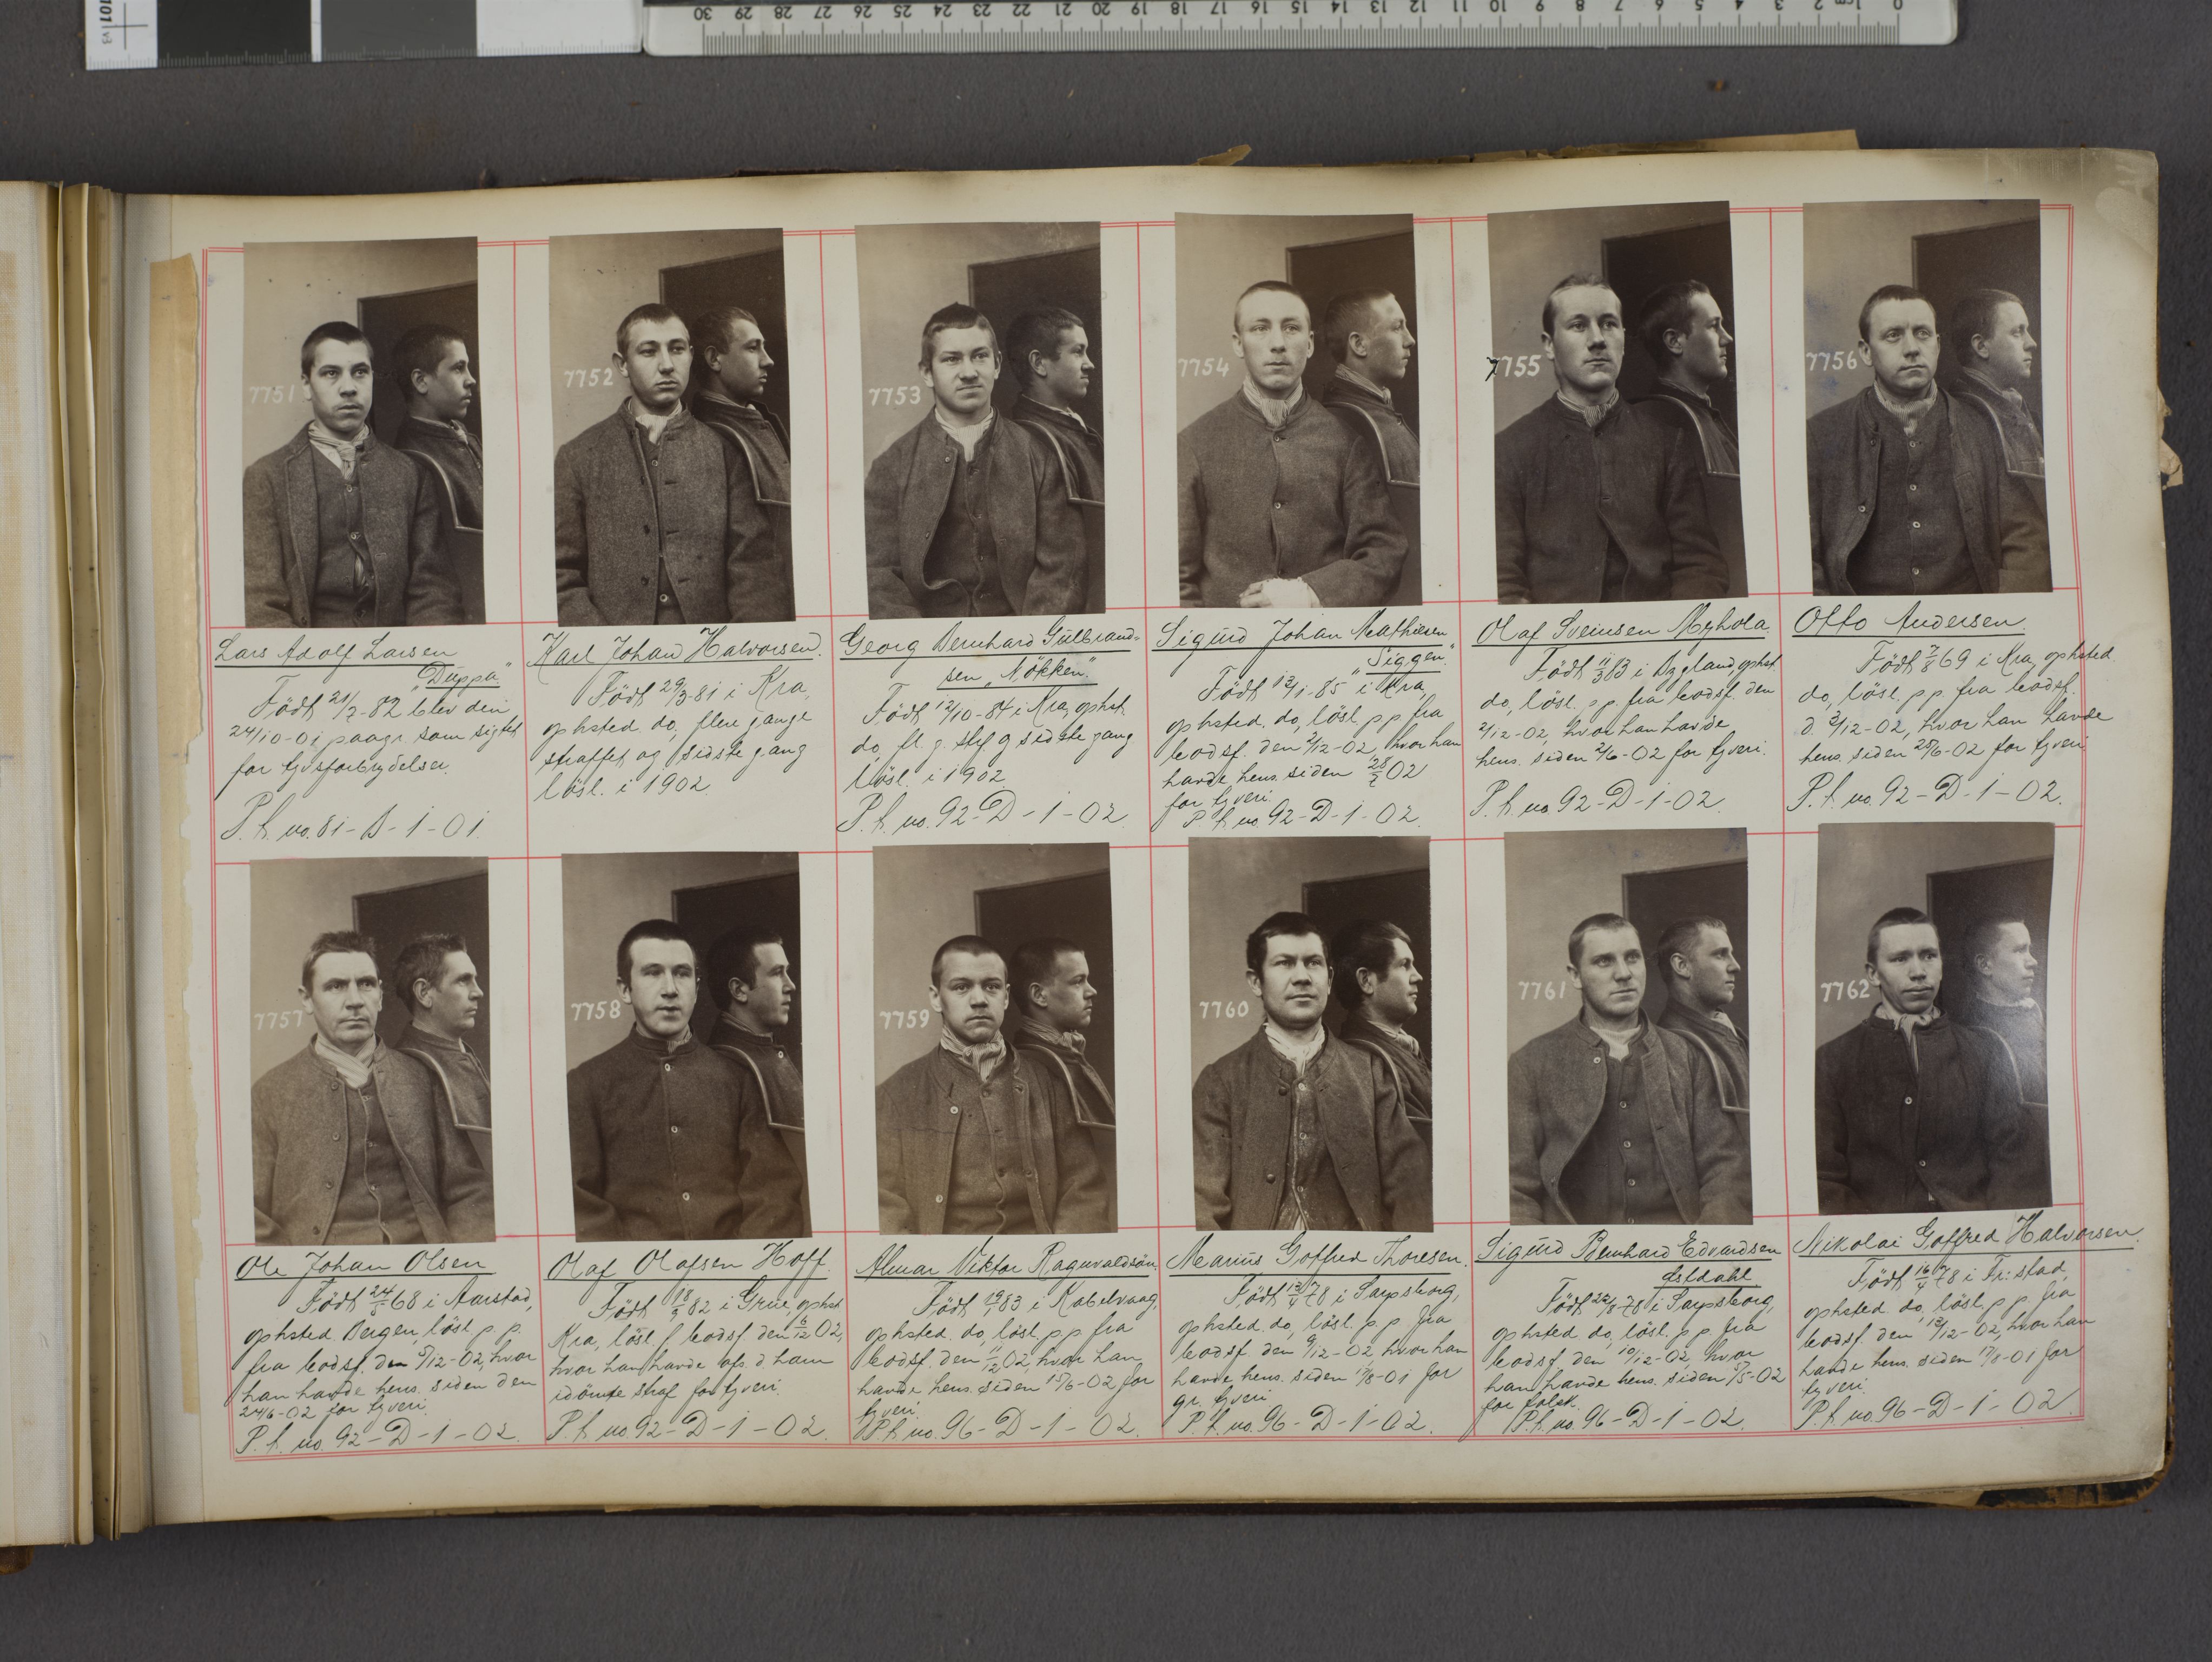 101 v3
30 29 28 27 26 25 24 23 22 21 20 19 18 17 16 15 14 13 12 11 10 9 8 7 6 5 4 3 2 1 cm 0
7751
Lars Adolf Larsen
"Duppa"
Födt 21/7-82 blev den
24/10-01 paagr. som sigtet
for tyvsforbrydelser.
P. f. no. 81-D-1-01.
7752
Karl Johan Halvorsen.
Födt 29/3-81 i Kra,
ophsted. do, flere gange
straffet og sidste gang
lösl. i 1902.
7753
Georg Bernhard Gülbrand=
sen "Nökken."
Födt 12/10-84 i Kra, ophst.
do, fl. g. stf. g sidste gang
lösl. i 1902
P. f. no. 92-D-1-02.
7754
Sigurd Johan Mathiesen
"Siggen."
Födt 13/1-85 i Kra,
ophsted. do, lösl. p p fra
bodsf. den 2/12-02, hvor han
havde hens. siden 28/2 02
for tyveri.
P. f. no. 92-D-1-02.
7755
Olaf Sveinsen Myhola.
Födt 11/3 83 i Bygland, ophst.
do, lösl. p. p. fra bodsf. den
2/12-02, hvor han havde
hens. siden 2/6-02 for tyveri.
P. f. no. 92-D-1-02.
7756
Otto Andersen.
Födt 7/8 69 i Kra, ophsted.
do, lösl. p p. fra bodsf.
d. 3/12-02, hvor han havde
hens. siden 25/6-02 for tyveri
P. f. no. 92-D-1-02.
7757
Ole Johan Olsen
Födt 24/5 68 i Aarstad,
ophsted Bergen, lösl. p. p.
fra bodsf. den 5/12-02, hvor
han havde hens. siden den
24/6-02 for tyveri.
P. f. no. 92-D-1-02.
7758
Olaf Olafsen Hoff.
Födt 18/9 82 i Grue, ophst
Kra, lösl. f bodsf. den 6/12 02,
hvor han havde afs. d. ham
idömte straf for tyveri.
P. f. no 92-D-1-02.
7759
Almar Viktor Ragnvaldsön.
Födt 19/1 83 i Kabelvaag,
ophsted. do, lösl. p. p. fra
bodsf. den 11/12 02, hvor han
havde hens. siden 15/6-02 for
tyveri.
P. f. no. 96-D-1-02.
7760
Marius Gotfred Thoresen.
Födt 13/4 78 i Sarpsborg,
ophsted. do, lösl. p. p. fra
bodsf. den 9/12-02 hvor han
havde hens. siden 17/8-01 for
gr. tyveri
P. f. no. 96-D-1-02.
7761
Sigurd Bernhard Edvardsen
Estdahl
Födt 22/8-78 i Sarpsborg,
ophsted do, lösl. p p fra
bodsf. den 10/12-02, hvor
han havde hens. siden 5/5-02
for falsk.
P. f. no. 96-D-1-02.
7762
Nikolai Gotfred Halvorsen.
Födt 16/4 78 i Fr:stad,
ophsted. do, lösl. p. p. fra
bodsf. den 13/12-02, hvor han
havde hens. siden 17/8-01 for
tyveri.
P. f. no. 96-D-1-02.